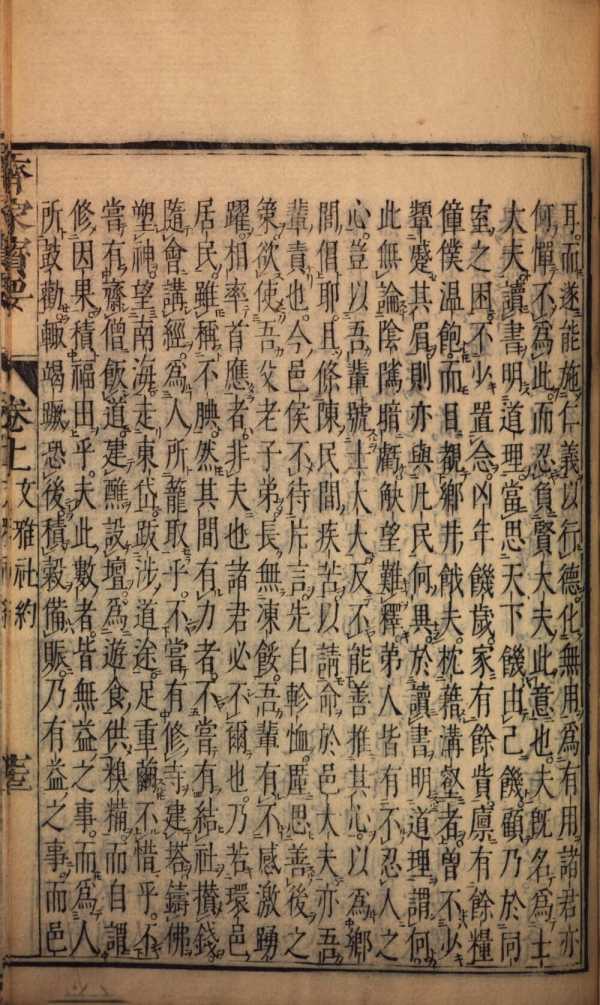 耳而遂能施仁義以行德化無用為有用諸君亦
何憚不為此而忍負賢大夫此意也夫既名為士
大夫讀書明道理當思天下饑由己饑顧乃於同
室之困不少置念凶年饑歲家有餘貲廩有餘糧
僮僕溫飽而目觀鄉井餓夫枕藉溝壑者曽不少
顰蹙其眉則亦與凡民何異於讀書明道理謂何
此無論陰隲暗虧觖望難釋弟人皆有不忍人之
心豈以吾輩號士大夫反不能善推其心以為鄉
閭倡耶且條陳民間疾苦以請命於邑大夫亦吾
輩責也今邑侯不待片言先自軫恤塵思善後之
策欲使吾父老子弟長無凍餒吾輩有不感激踴
躍相率首應者非夫也諸君必不爾也乃若環邑
居民雖稱不腆然其間有力者不嘗有結社攅錢
隨會講經為人所籠取乎不嘗有修寺建塔鑄佛
塑神望南海走東岱跋涉道途足重繭不惜乎不
嘗有齋僧飯道建醮設壇為遊食供糗糒而自謂
修因果積福田乎夫此數者皆無益之事而為人
所鼓勸輙竭蹶恐後積穀備賑乃有益之事而邑
齊家寶要
卷上
文雅社約